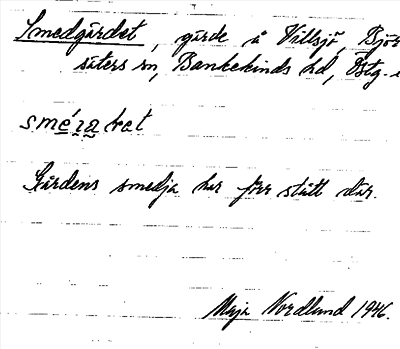 Smedgärdet, gärde å Villsjö, Björ
säters sn, Bankekinds hd, Östg.
Gårdens smedja har förr stått där.
Maja Nordlund 1946.